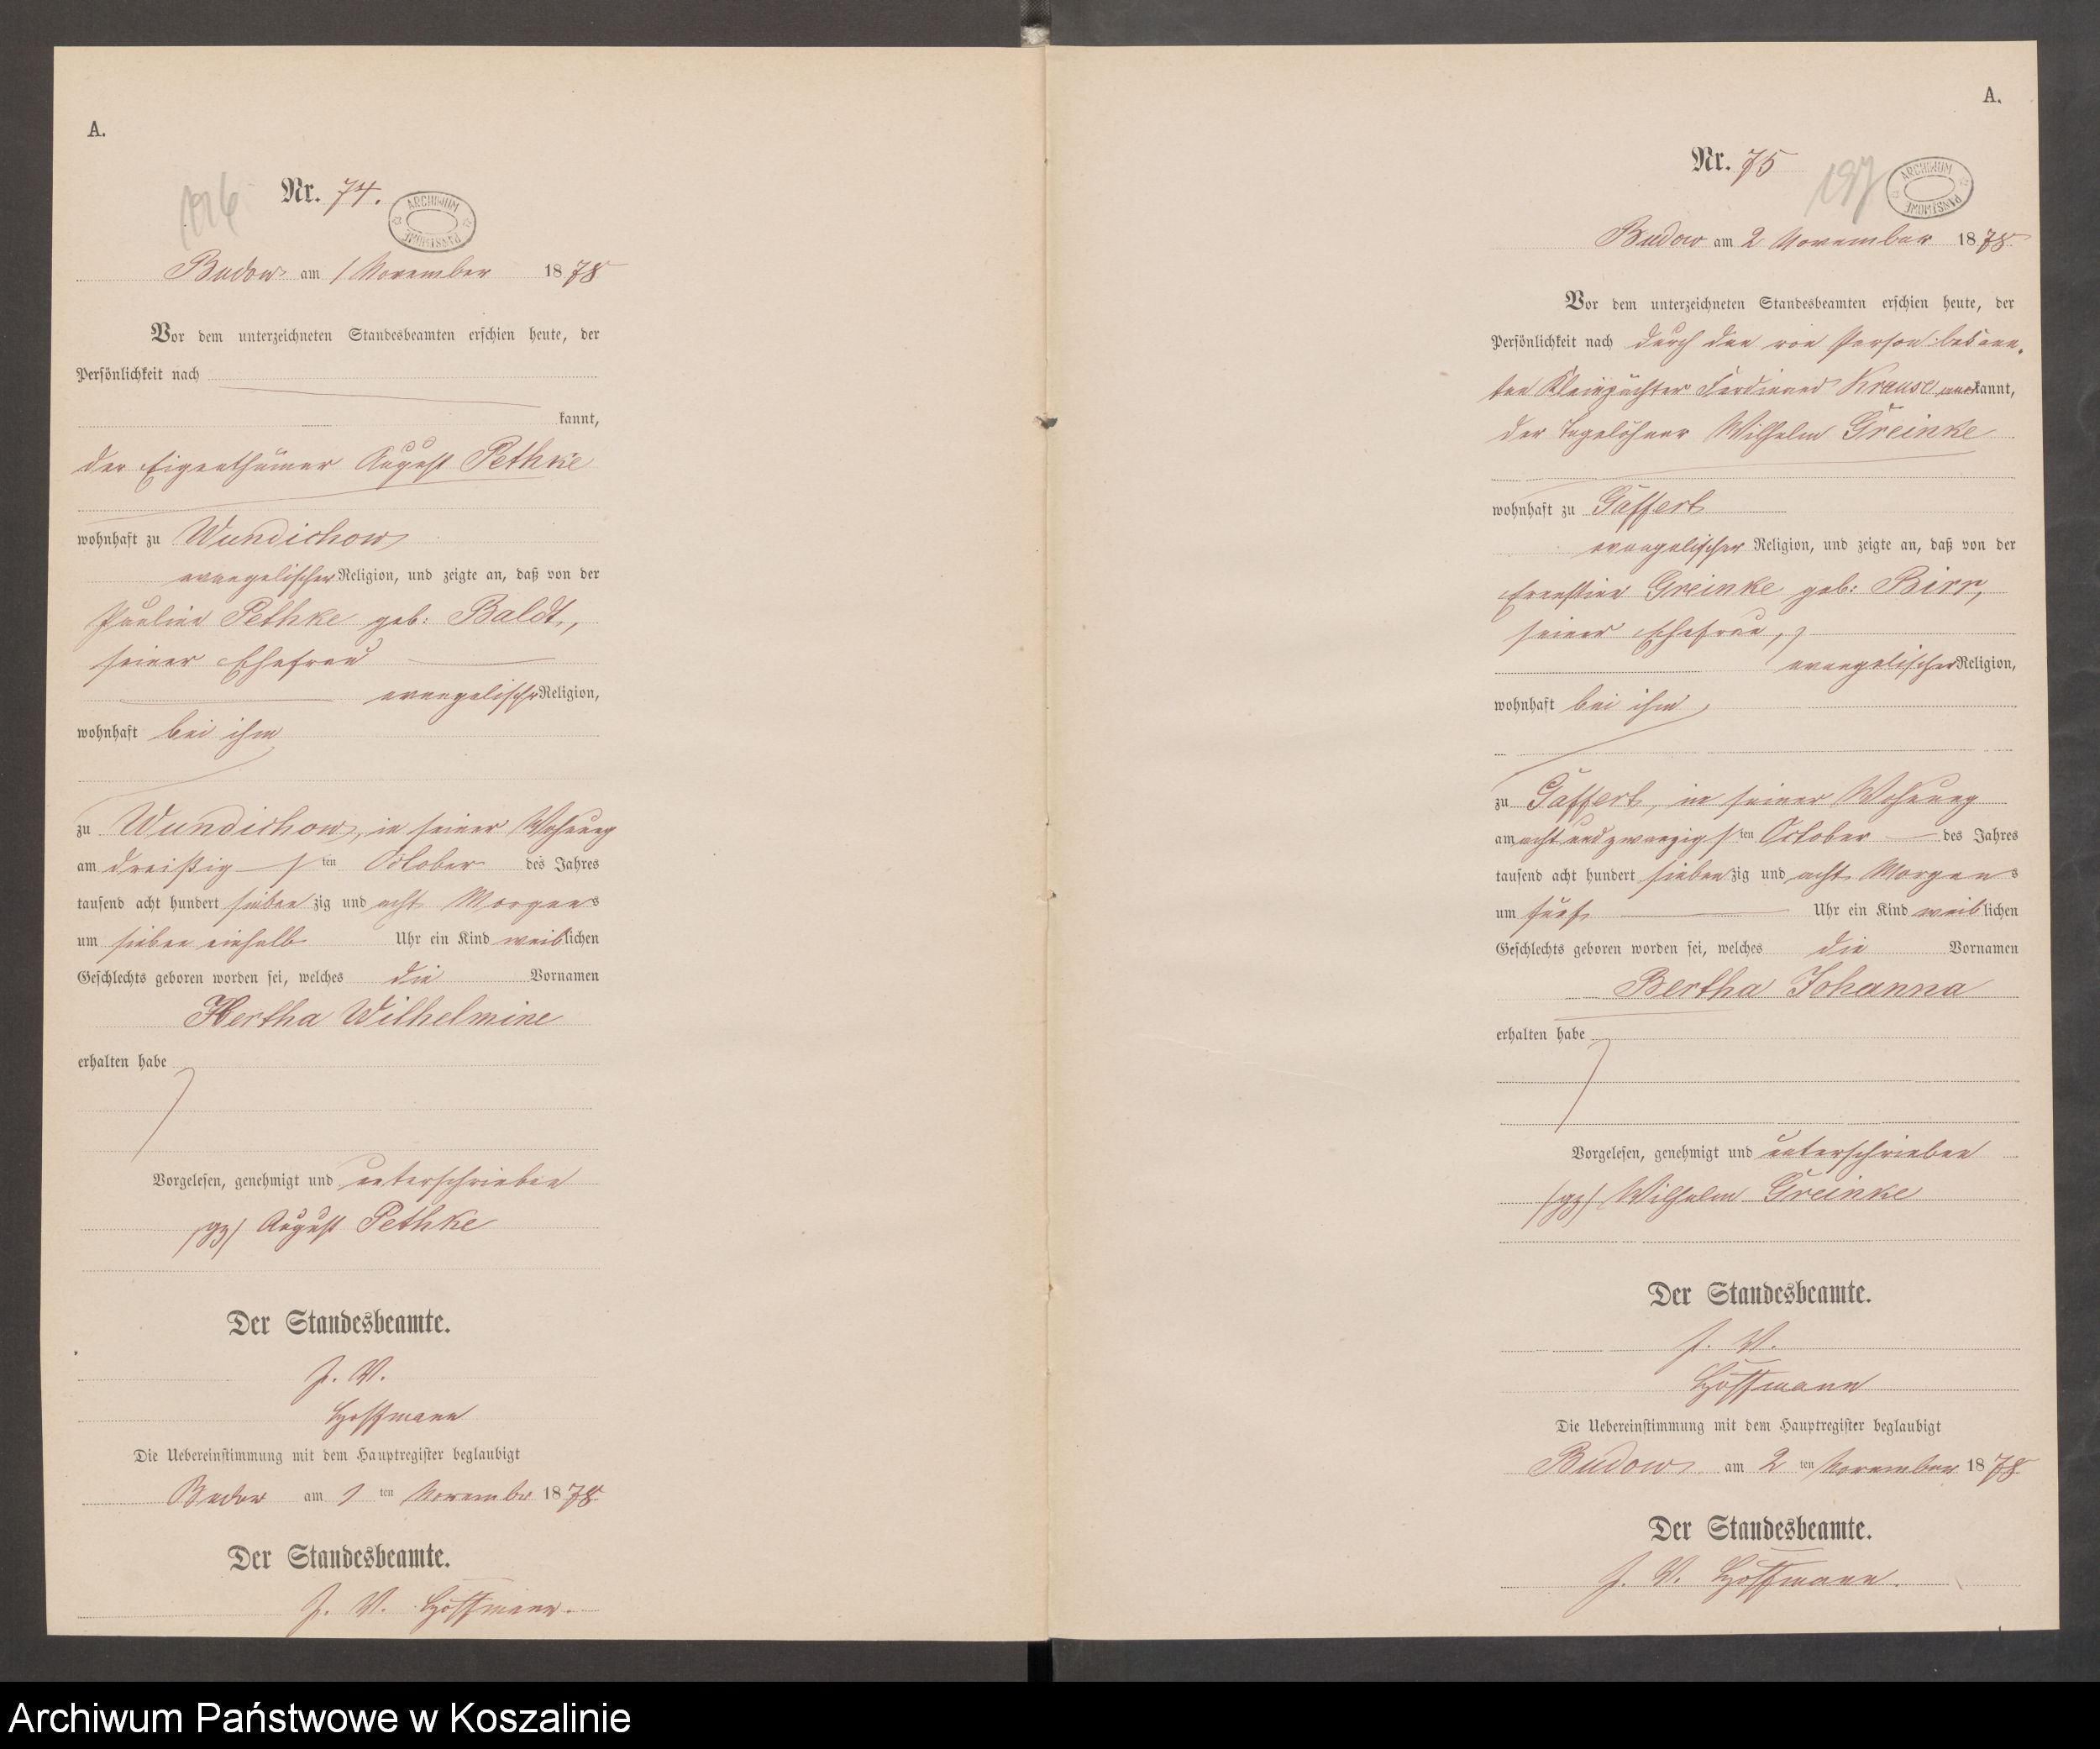 A.
Nr. 74.
ARCHIWUM PAŃSTWOWE
Budow am 1 November 1878
Vor dem unterzeichneten Standesbeamten erschien heute, der
Persönlichkeit nach
kannt,
der Eigenthümer August Pethke
wohnhaft zu Wundichow
evangelischer Religion, und zeigte an, daß von der
Pauline Pethke geb: Baldt,
seiner Ehefrau
evangelischer Religion,
wohnhaft bei ihm
zu Wundichow, in seiner Wohnung
am dreißigsten October des Jahres
tausend acht hundert siebenzig und acht Morgens
um sieben einhalb Uhr ein Kind weiblichen
Geschlechts geboren worden sei, welches die Vornamen
Hertha Wilhelmine
erhalten habe
Vorgelesen, genehmigt und unterschrieben
(gz) August Pethke
Der Standesbeamte.
J. V.
Hoffmann
Die Uebereinstimmung mit dem Hauptregister beglaubigt
Budow am 1 ten November 1878.
Der Standesbeamte.
J. V. Hoffmann.
A.
Nr. 75
197
ARCHIWUM PAŃSTWOWE
Budow am 2 November 1878.
Vor dem unterzeichneten Standesbeamten erschien heute, der
Persönlichkeit nach durch den von Person bekann-
ten Kleinpächter Ferdinand Krause anerkannt,
der Tagelöhner Wilhelm Greinke
wohnhaft zu Gaffert
evangelischer Religion, und zeigte an, daß von der
Ernestine Greinke geb: Birr,
seiner Ehefrau,
evangelischer Religion,
wohnhaft bei ihm
zu Gaffert, in seiner Wohnung
am acht und zwanzigsten October des Jahres
tausend acht hundert siebenzig und acht Morgens
um fünf Uhr ein Kind weiblichen
Geschlechts geboren worden sei, welches die Vornamen
Bertha Johanna
erhalten habe
Vorgelesen, genehmigt und unterschrieben
(gz) Wilhelm Greinke
Der Standesbeamte.
J. V.
Hoffmann
Die Uebereinstimmung mit dem Hauptregister beglaubigt
Budow am 2 ten November 1878
Der Standesbeamte.
J. V. Hoffmann.
Archiwum Państwowe w Koszalinie